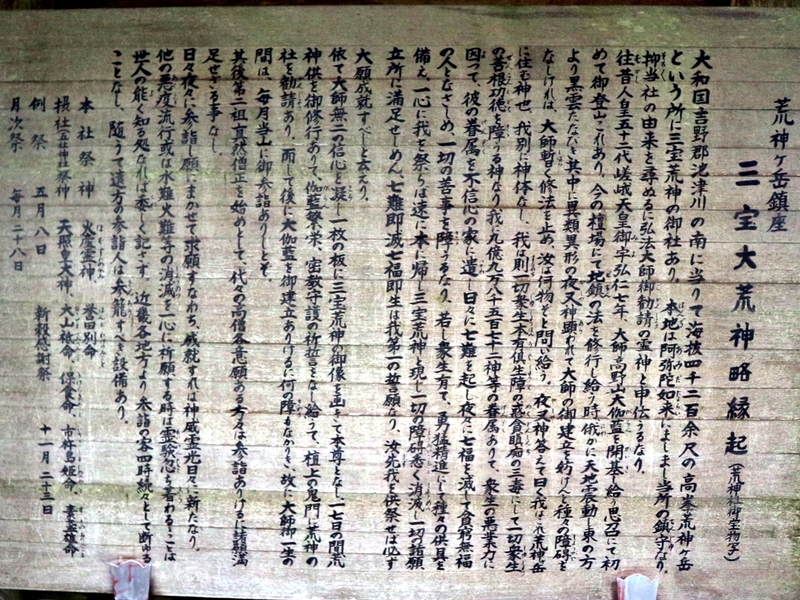 荒神ヶ岳鎮座
三宝大荒神略縁起(荒神社御宝物写)
大和国吉野郡池津川の南に当りて海抜四千二百余尺の高峯荒神ヶ岳
という所に三宝荒神の御社あり。本地は阿弥陀如来にましまし当所の鎮守なり。
抑当社の由来を尋ぬるに弘法大師御勧請の霊神と申伝うるなり。
往昔人皇五十二代嵯峨天皇御宇弘仁七年、大師高野山大伽藍を開基し給う思召にて初
めて御登山これあり、今の檀場にて地鎮の法を修行し給う時俄かに天地震動し東の方
より黒雲たなびき其中に異類異形の夜叉神顕われて大師の御建立を妨げんと種々の障碍を
なしければ、大師暫く修法を止め、汝は何物ぞと問い給う。夜叉神答えて曰く我はこれ荒神ヶ岳
に住む神也、我別に神体なし、我は則一切衆生本有倶生障の惑貪瞋痴の三毒にして一切衆生
の善根功徳を障うる神なり我に九億九万八千五百七十二神等の眷属ありて、衆生の悪業力に
因って、彼の眷属を不信心の家に遣し日々に七難を起し夜々に七福を滅して貧窮無福
の人となさしめ、一切の善事を障うるなり、若し衆生有て、勇猛精進にして種々の供具を
備え一心に我を祭らば速に本に帰し三宝荒神と現し一切の障碍悉く消滅し一切の諸願
立所に満足せしめん、七難即滅七福即生は我第一の誓願なり、汝先我を供祭せば必ず
大願成就すべしと云々なり。
依て大師無二の信心を凝らし一枚の板に三宝荒神の御像を画きて本尊となし一七日の間荒
神供を御修行ありて、伽藍繁栄、密教守護の祈誓をなし給うて、檀上の鬼門に荒神の
社を勧請あり、而して後に大伽藍を御建立ありけるに何の障もなかりき、故に大師御一生の
間は、毎月当山に御参詣ありしとぞ。
其後第二祖真然僧正を始めとして、代々の高僧各意願ある方々は参詣ありけるに諸願満
足せざる事なし。
日々夜々に参詣し願にまかせて求願すなわち、成就すれば神威霊光日々に新たなり。
他の悪疫流行或は水難火難等の消滅を一心に祈願する時は霊験必ず著わるることは
世人の能く知る処なれば委しく記さず。近畿各地方より参詣の客四時続々として断ゆる
ことなし、随うて遠方の参詣人は参籠すべき設備あり。
本社祭神 火産霊神、誉田別命
摂社祭神 天照皇大神、大山祇命、保食命、市杵島姫命、素盞雄命
例祭 五月八日 新穀感謝祭 十一月二十三日
月次祭 毎月二十八日